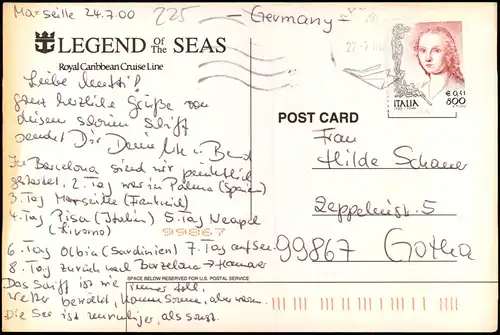 Marseille 24.7.00
225
— Germany —
LEGEND Of The SEAS
Royal Caribbean Cruise Line
Liebe Mutti!
ganz herzliche Grüße von
diesem schönen Schiff
sendet Dir Deine Ute u. Bernd
In Barcelona sind wir pünktlich
gestartet. 2. Tag war in Palma (Spanien)
3. Tag Marseille (Frankreich)
4. Tag Pisa (Italien) 5. Tag Neapel
(Livorno)
99867
6. Tag Olbia (Sardinien) 7. Tag auf See
8. Tag zurück nach Barzelona → Hannover
SPACE BELOW RESERVED FOR U.S. POSTAL SERVICE
Das Schiff ist wie immer toll.
Wetter bewölkt, kaum Sonne, aber warm.
Die See ist unruhiger, als sonst.
POST CARD
ITALIA
€ 0,41
800
Frau
Hilde Schauer
Zeppelinstr. 5
99867 Gotha